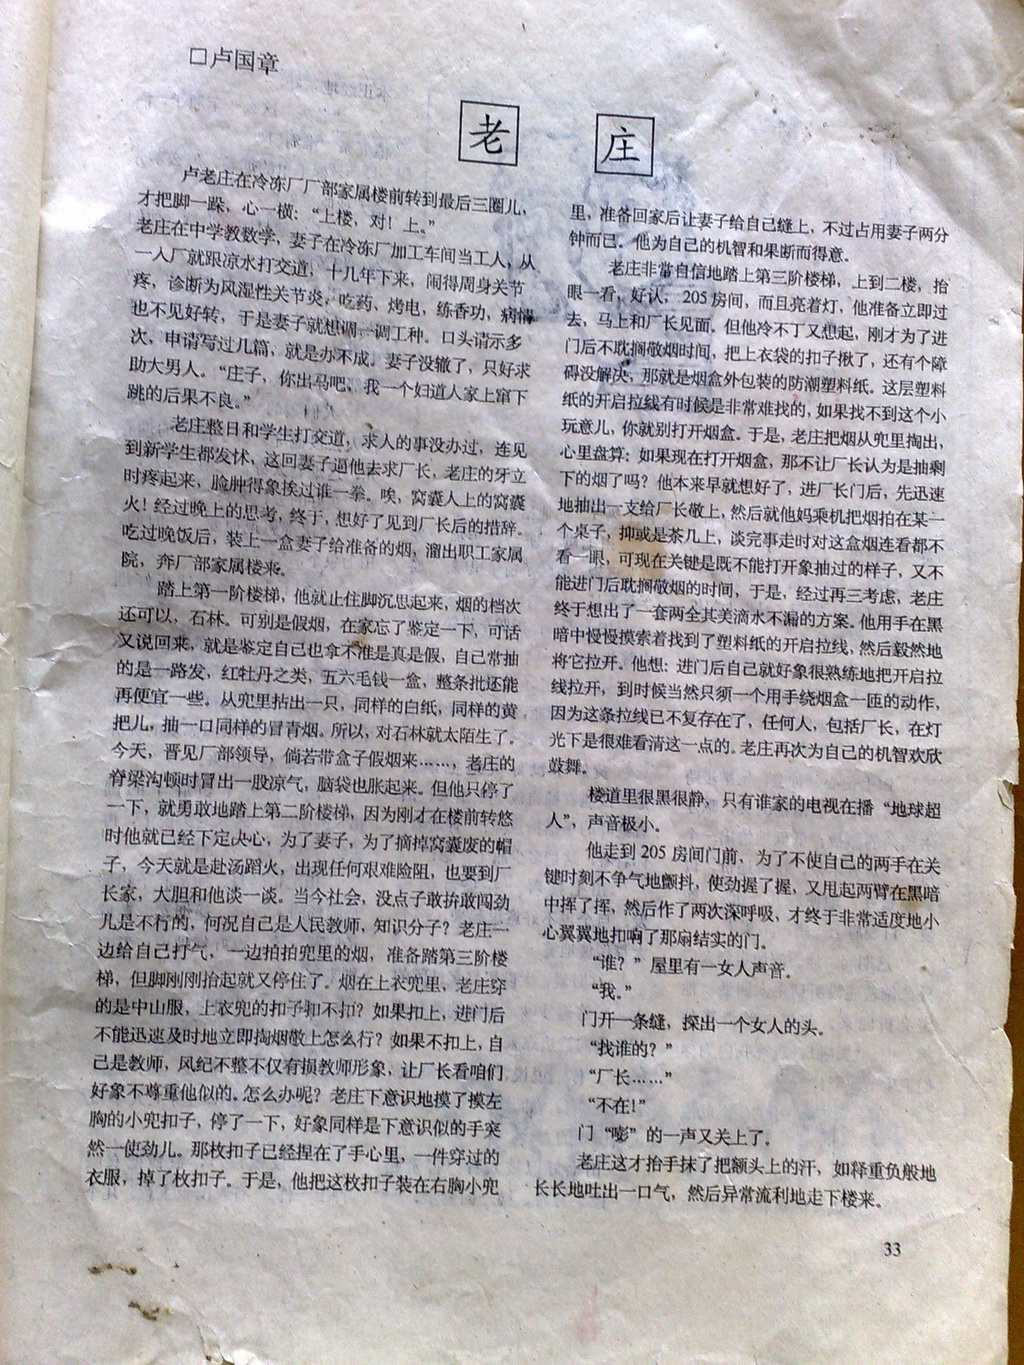 □卢国章
老 庄
卢老庄在冷冻厂厂部家属楼前转到最后三圈儿，
才把脚一跺，心一横：“上楼，对！上。”
老庄在中学教数学，妻子在冷冻厂加工车间当工人，从
一入厂就跟凉水打交道，十几年下来，闹得周身关节
疼，诊断为风湿性关节炎，吃药、烤电，练香功，病情
也不见好转，于是妻子就想调一调工种。口头请示多
次，申请写过几篇，就是办不成。妻子没辙了，只好求
助大男人。“庄子，你出马吧，我一个妇道人家上窜下
跳的后果不良。”
老庄整日和学生打交道，求人的事没办过，连见
到新学生都发怵，这回妻子逼他去求厂长，老庄的牙立
时疼起来，脸肿得象挨过谁一拳。唉，窝囊人上的窝囊
火！经过晚上的思考，终于，想好了见到厂长后的措辞。
吃过晚饭后，装上一盒妻子给准备的烟，溜出职工家属
院，奔厂部家属楼来。
踏上第一阶楼梯，他就止住脚沉思起来，烟的档次
还可以，石林。可别是假烟，在家忘了鉴定一下，可话
又说回来，就是鉴定自己也拿不准是真是假，自己常抽
的是一路发，红牡丹之类，五六毛钱一盒，整条批还能
再便宜一些。从兜里拈出一只，同样的白纸，同样的黄
把儿，抽一口同样的冒青烟。所以，对石林就太陌生了。
今天，晋见厂部领导，倘若带盒子假烟来……，老庄的
脊梁沟顿时冒出一股凉气，脑袋也胀起来。但他只停了
一下，就勇敢地踏上第二阶楼梯，因为刚才在楼前转悠
时他就已经下定决心，为了妻子，为了摘掉窝囊废的帽
子，今天就是赴汤蹈火，出现任何艰难险阻，也要到厂
长家，大胆和他谈一谈。当今社会，没点子敢拚敢闯劲
儿是不行的，何况自己是人民教师，知识分子？老庄一
边给自己打气，一边拍拍兜里的烟，准备踏第三阶楼
梯，但脚刚刚抬起就又停住了。烟在上衣兜里，老庄穿
的是中山服，上衣兜的扣子扣不扣？如果扣上，进门后
不能迅速及时地立即掏烟敬上怎么行？如果不扣上，自
己是教师，风纪不整不仅有损教师形象，让厂长看咱们
好象不尊重他似的。怎么办呢？老庄下意识地摸了摸左
胸的小兜扣子，停了一下，好象同样是下意识似的手突
然一使劲儿。那枚扣子已经捏在了手心里，一件穿过的
衣服，掉了枚扣子。于是，他把这枚扣子装在右胸小兜
里，准备回家后让妻子给自己缝上，不过占用妻子两分
钟而已。他为自己的机智和果断而得意。
老庄非常自信地踏上第三阶楼梯，上到二楼，抬
眼一看，好认，205房间，而且亮着灯，他准备立即过
去，马上和厂长见面。但他冷不丁又想起，刚才为了进
门后不耽搁敬烟时间，把上衣袋的扣子揪了，还有个障
碍没解决，那就是烟盒外包装的防潮塑料纸。这层塑料
纸的开启拉线有时候是非常难找的，如果找不到这个小
玩意儿，你就别打开烟盒。于是，老庄把烟从兜里掏出，
心里盘算：如果现在打开烟盒，那不让厂长认为是抽剩
下的烟了吗？他本来早就想好了，进厂长门后，先迅速
地抽出一支给厂长敬上，然后就他妈乘机把烟拍在某一
个桌子，抑或是茶几上，谈完事走时对这盒烟连看都不
看一眼，可现在关键是既不能打开象抽过的样子，又不
能进门后耽搁敬烟的时间，于是，经过再三考虑，老庄
终于想出了一套两全其美滴水不漏的方案。他用手在黑
暗中慢慢摸索着找到了塑料纸的开启拉线，然后毅然地
将它拉开。他想：进门后自己就好象很熟练地把开启拉
线拉开，到时候当然只须一个用手绕烟盒一匝的动作，
因为这条拉线已不复存在了，任何人，包括厂长，在灯
光下是很难看清这一点的。老庄再次为自己的机智欢欣
鼓舞。
楼道里很黑很静，只有谁家的电视在播“地球超
人”，声音极小。
他走到205房间门前，为了不使自己的两手在关
键时刻不争气地颤抖，使劲握了握，又甩起两臂在黑暗
中挥了挥，然后作了两次深呼吸，才终于非常适度地小
心翼翼地扣响了那扇结实的门。
“谁？”屋里有一女人声音。
“我。”
门开一条缝，探出一个女人的头。
“找谁的？”
“厂长……”
“不在！”
门“嘭”的一声又关上了。
老庄这才抬手抹了把额头上的汗，如释重负般地
长长地吐出一口气，然后异常流利地走下楼来。
33